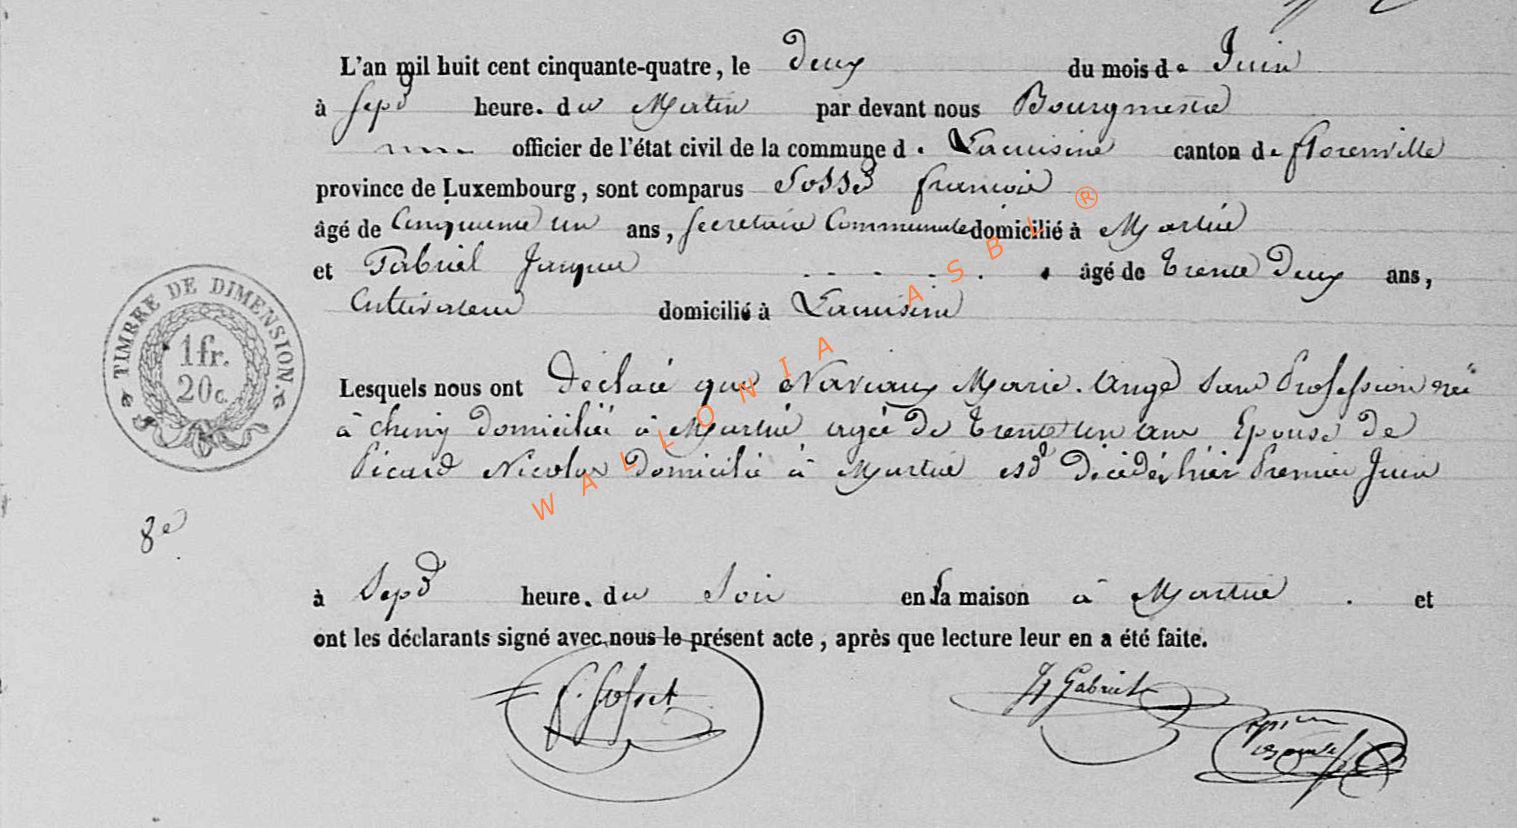 L'an mil huit cent cinquante-quatre, le deux du mois de Juin
à Sept heure. du Matin par devant nous Bourgmestre
officier de l'état civil de la commune d. Lacuisine canton de florenville
province de Luxembourg, sont comparus Gosset françois
âgé de Cinquante un ans, Secretaire Communale domicilié à Martué
et Gabriel Jacques âgé de trente Deux ans,
Cultivateur domicilié à Lacuisine
TIMBRE DE DIMENSION.
1 fr.
20 c.
Lesquels nous ont déclaré que Naviaux Marie. Ange Sans Profession née
à Chiny Domiciliée à Martué agée De trente un ans Epouse De
Picard Nicolas Domicilié à Martué est Décédée hier Premier Juin
8e
à Sept heure. du Soir en sa maison à Martué. et
ont les déclarants signé avec nous le présent acte, après que lecture leur en a été faite.
f. Gosset
Gabriel
WALLONIA ASBL ®